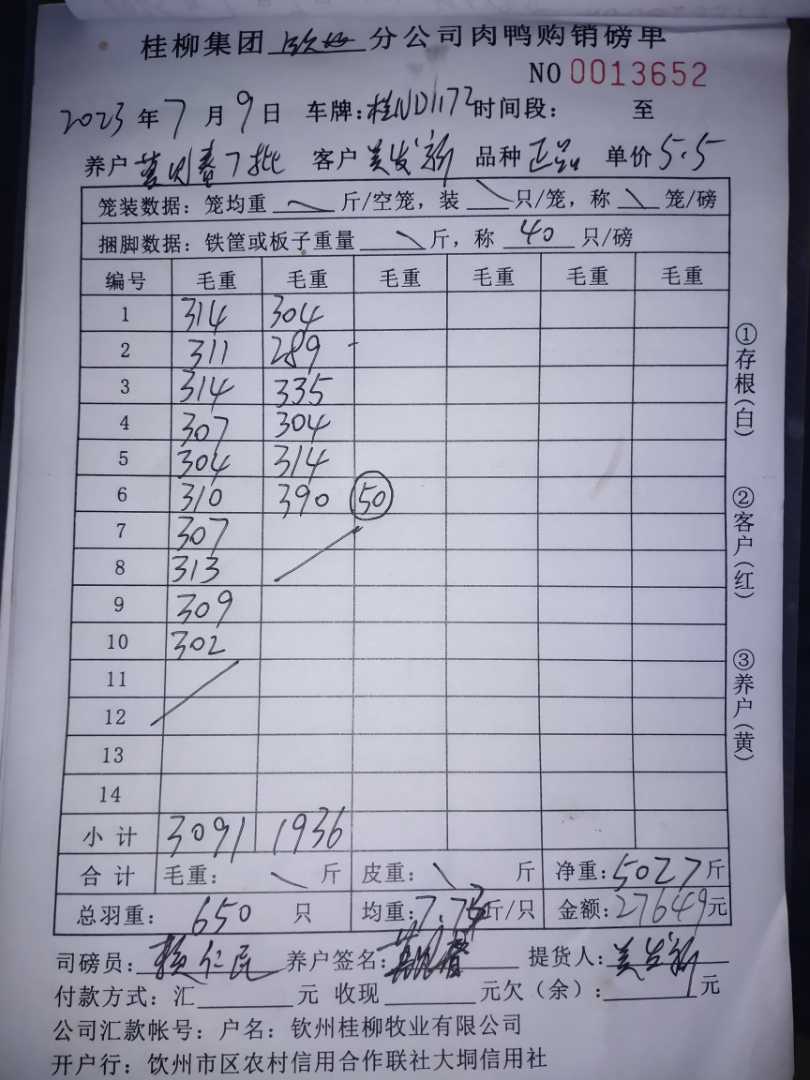 桂柳集团 钦州 分公司肉鸭购销磅单
NO 0013652
2023 年 7 月 9 日 车牌:桂ND1172 时间段: 至
养户 7批 客户 美发新 品种 正品 单价 5.5
笼装数据: 笼均重 斤/空笼, 装 只/笼, 称 笼/磅
捆脚数据: 铁筐或板子重量 斤, 称 40 只/磅
编号 毛重 毛重 毛重 毛重 毛重 毛重
1 314 304
2 311 289
3 314 335
4 307 304
5 304 314
6 310 390 50
7 307
8 313
9 309
10 302
11
12
13
14
小计 3091 1936
合计 毛重: 斤 皮重: 斤 净重: 5027 斤
总羽重: 650 只 均重: 7.73 斤/只 金额: 27649 元
司磅员: 养户签名: 提货人: 美发新
付款方式: 汇 元 收现 元欠(余): 元
公司汇款帐号: 户名: 钦州桂柳牧业有限公司
开户行: 钦州市区农村信用合作联社大垌信用社
①存根(白)
②客户(红)
③养户(黄)